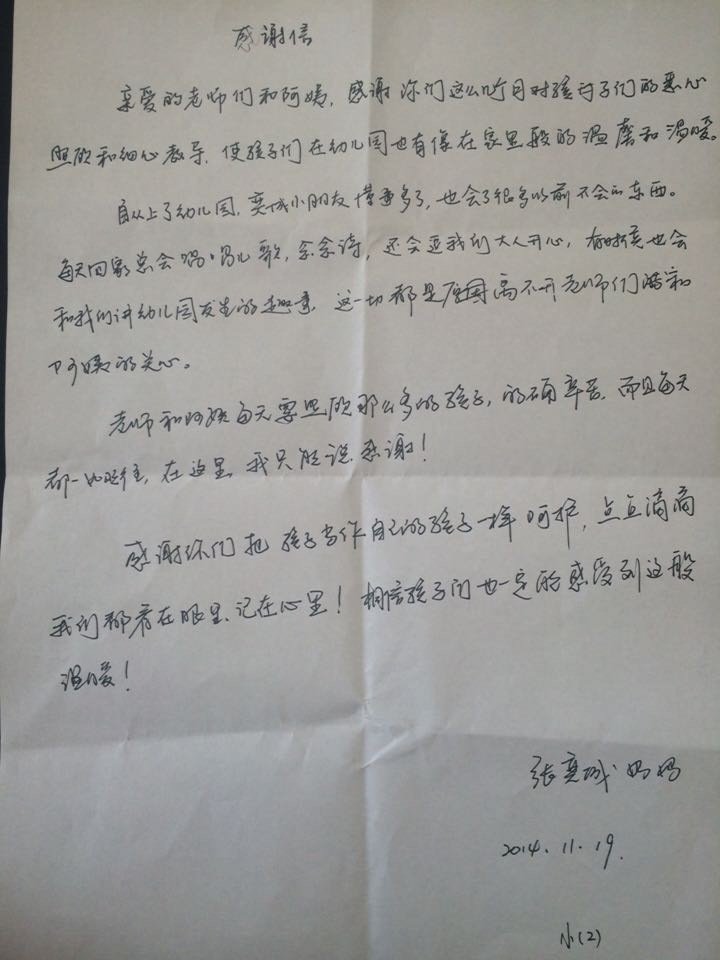 感谢信
亲爱的老师们和阿姨，感谢你们这么几个月对孩子们的悉心
照顾和细心教导，使孩子们在幼儿园也有像在家里般的温馨和温暖。
自从上了幼儿园，奕城小朋友懂事多了，也会了很多以前不会的东西。
每天回家总会唱唱儿歌，念念诗，还会逗我们大人开心，有时候也会
和我们讲幼儿园发生的趣事，这一切都是离不开老师们和
阿姨的关心。
老师和阿姨每天要照顾那么多的孩子，的确辛苦，而且每天
都一如既往，在这里，我只能说感谢！
感谢你们把孩子当作自己的孩子一样呵护，点点滴滴
我们都看在眼里、记在心里！相信孩子们也一定的感受到这般
温暖！
张奕城妈妈
2014.11.19.
小(2)